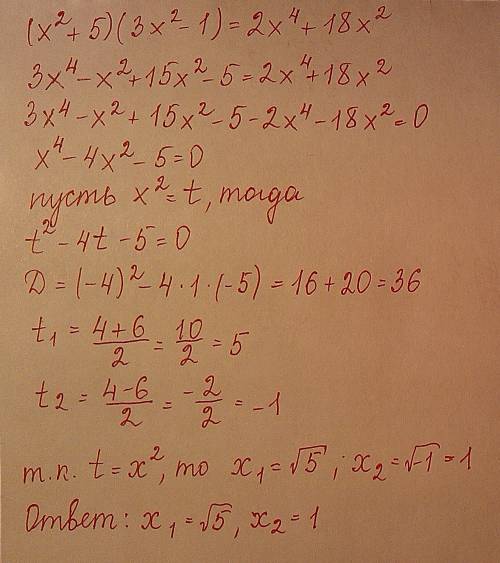 (x² + 5)(3x² - 1) = 2x⁴ + 18x²
3x⁴ - x² + 15x² - 5 = 2x⁴ + 18x²
3x⁴ - x² + 15x² - 5 - 2x⁴ - 18x² = 0
x⁴ - 4x² - 5 = 0
пусть x² = t, тогда
t² - 4t - 5 = 0
D = (-4)² - 4·1·(-5) = 16 + 20 = 36
t₁ = (4+6)/2 = 10/2 = 5
t₂ = (4-6)/2 = -2/2 = -1
т.к. t = x², то x₁ = √5; x₂ = √-1 = 1
Ответ: x₁ = √5, x₂ = 1